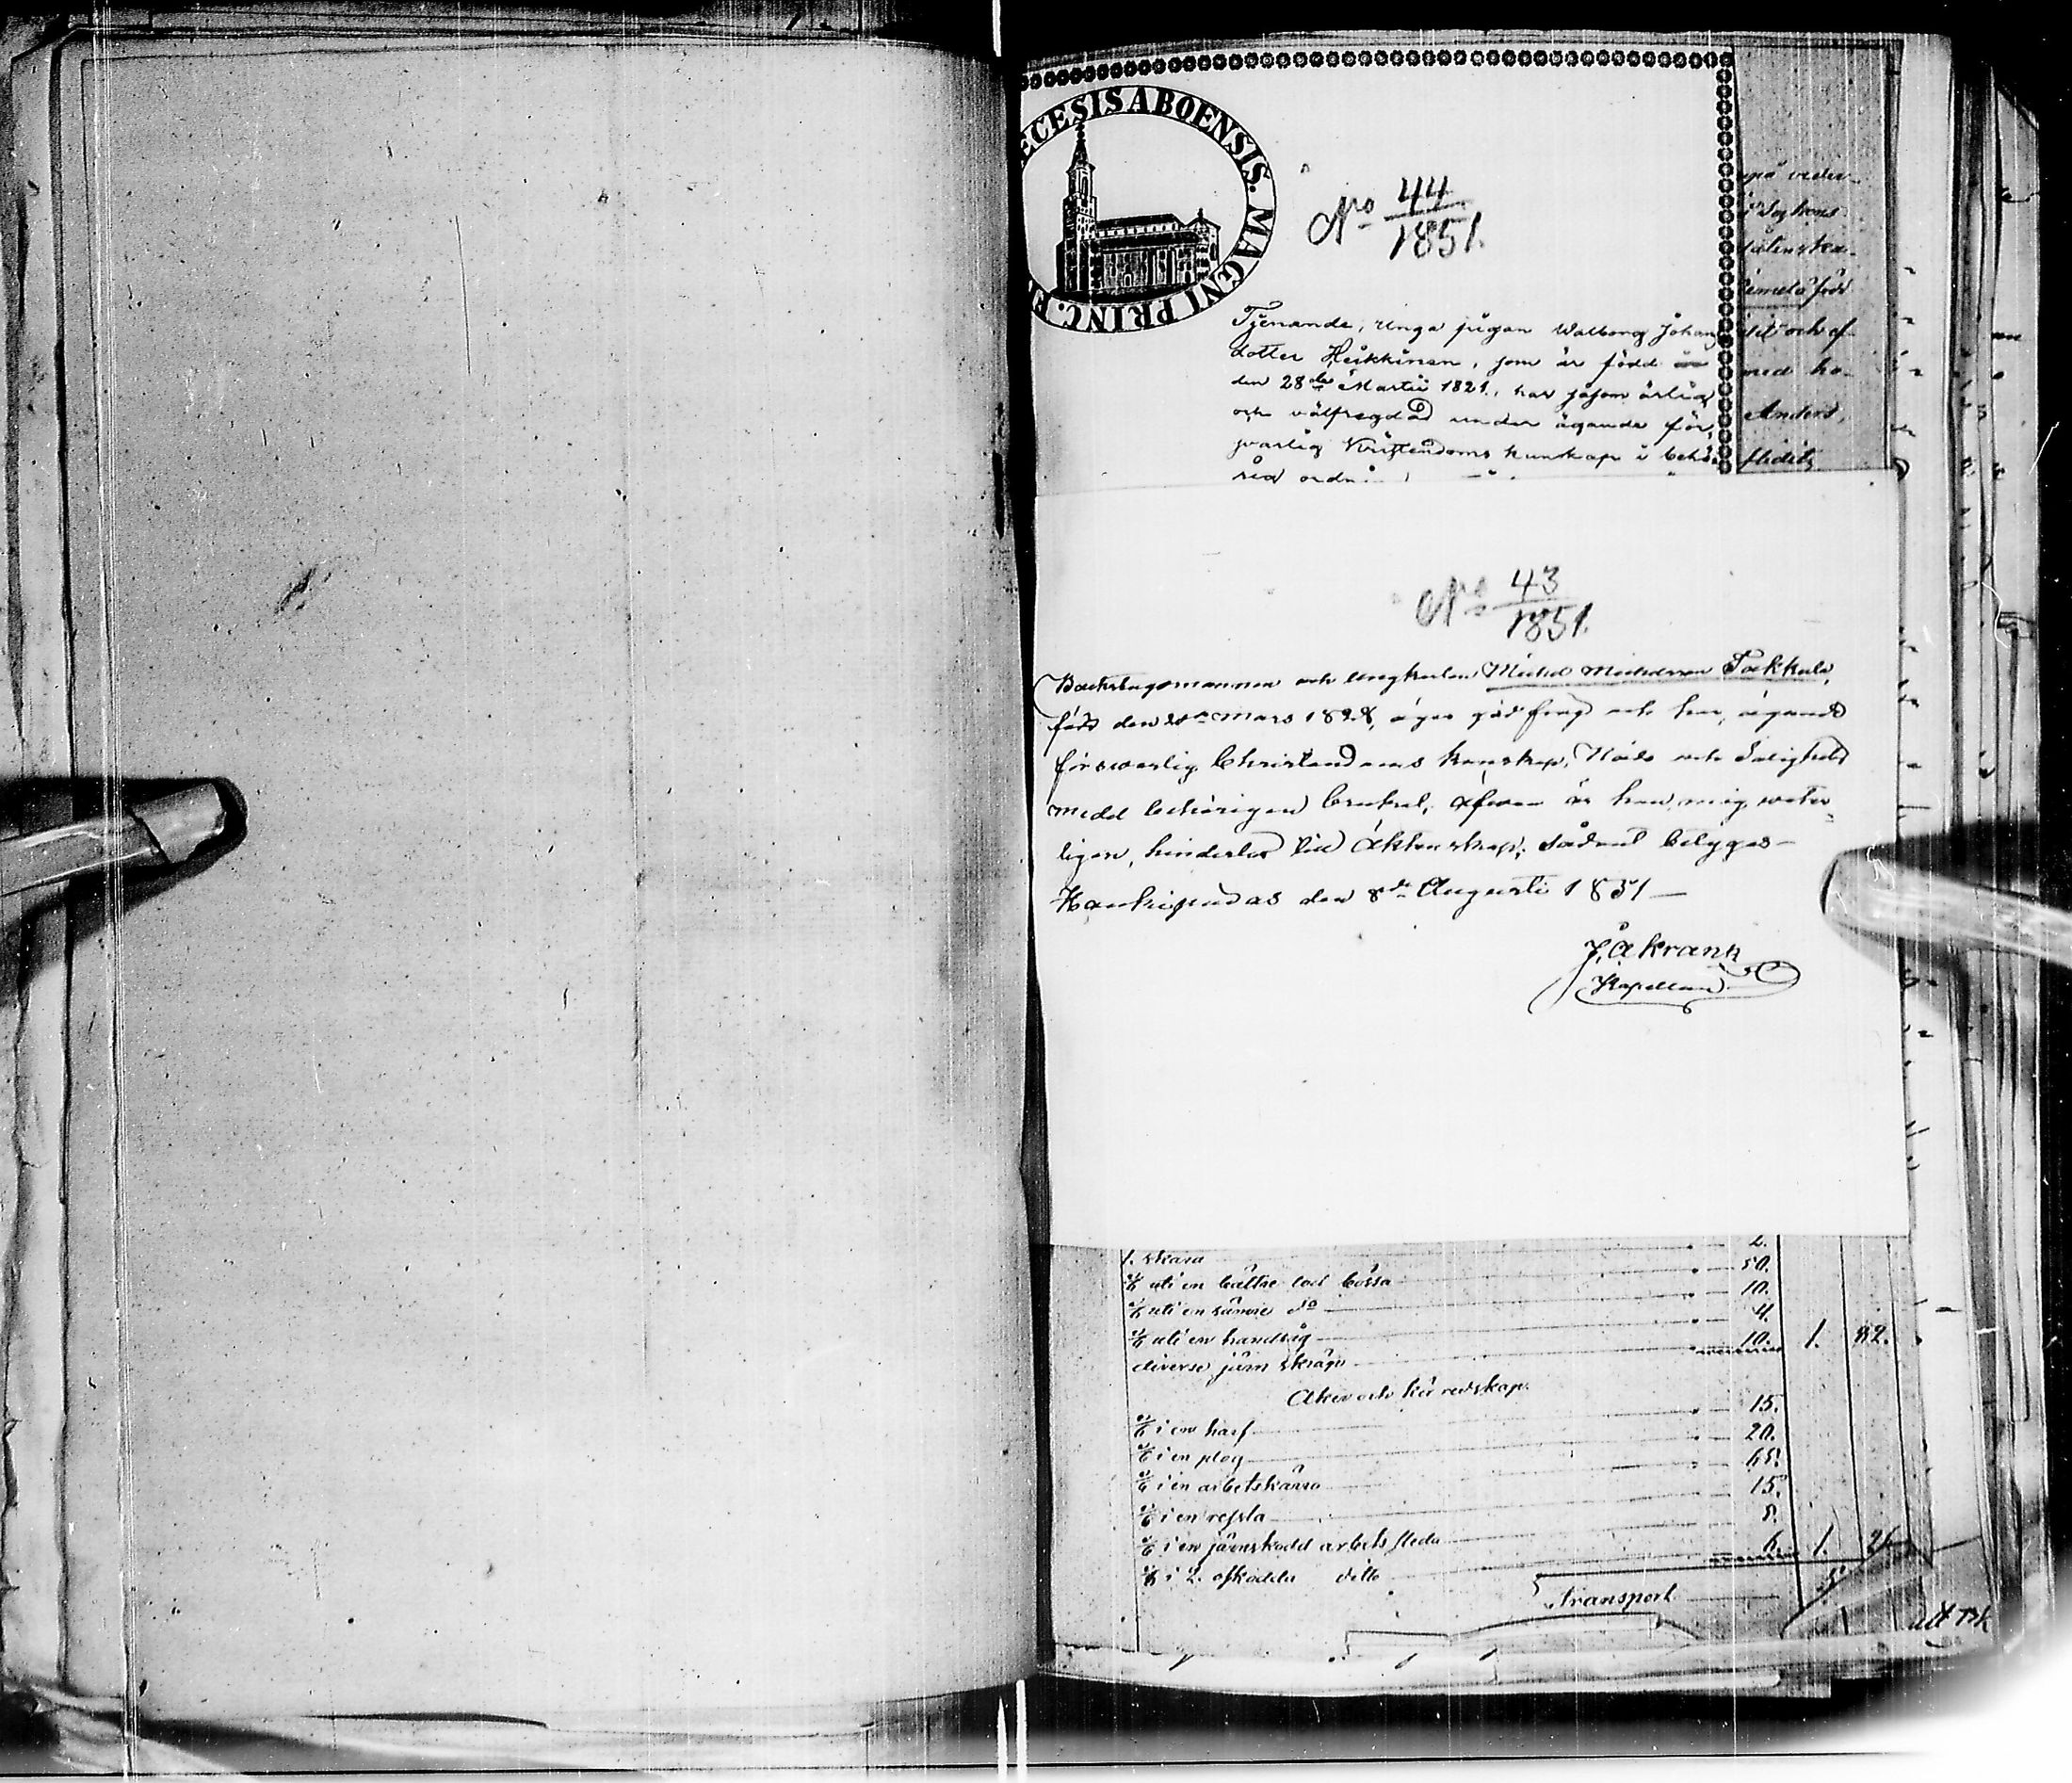 DIOECESIS ABOENSIS. MAGNI PRINC. F
No 44
1851.
Tjenande, unga pigan Walborg Johans
dotter Heikkinen, som är född
den 28de Martii 1821, har såsom ärlig
och välfregdad under ägande för
svarlig Kristendoms kunskap i behö
rig ordn
på veder
i Sockens
med ha
Anders,
flidit
No 43
1851.
Backstugomannen och ungkarlen Michel Michelsson Takkula,
född den mars 1828, äger god frejd och har, ägande
försvarlig Christendoms kunskap, Nåde och Salighets
medel behörigen brukat, äfven är han, mig veter-
ligen, hinderlös till Äktenskap; Sådant betygas
Kankaanpää den 8de Augusti 1851
J. Åkrank
Kapellan
1. skara 2.
1/6 uti en bättre lod bössa 50.
1/6 uti en sämre do 10.
1/6 uti en handsåg 4.
diverse järn skräp 10. 1. 82.
Åker och kör redskap.
1/6 i en harf 15.
1/6 i en plog 20.
1/6 i en arbetskärra 65.
1/6 i en ressla 15.
1/6 i en järnskodd arbets släda 8.
1/6 i 2. oskodda ditto 6. 1.
Transport